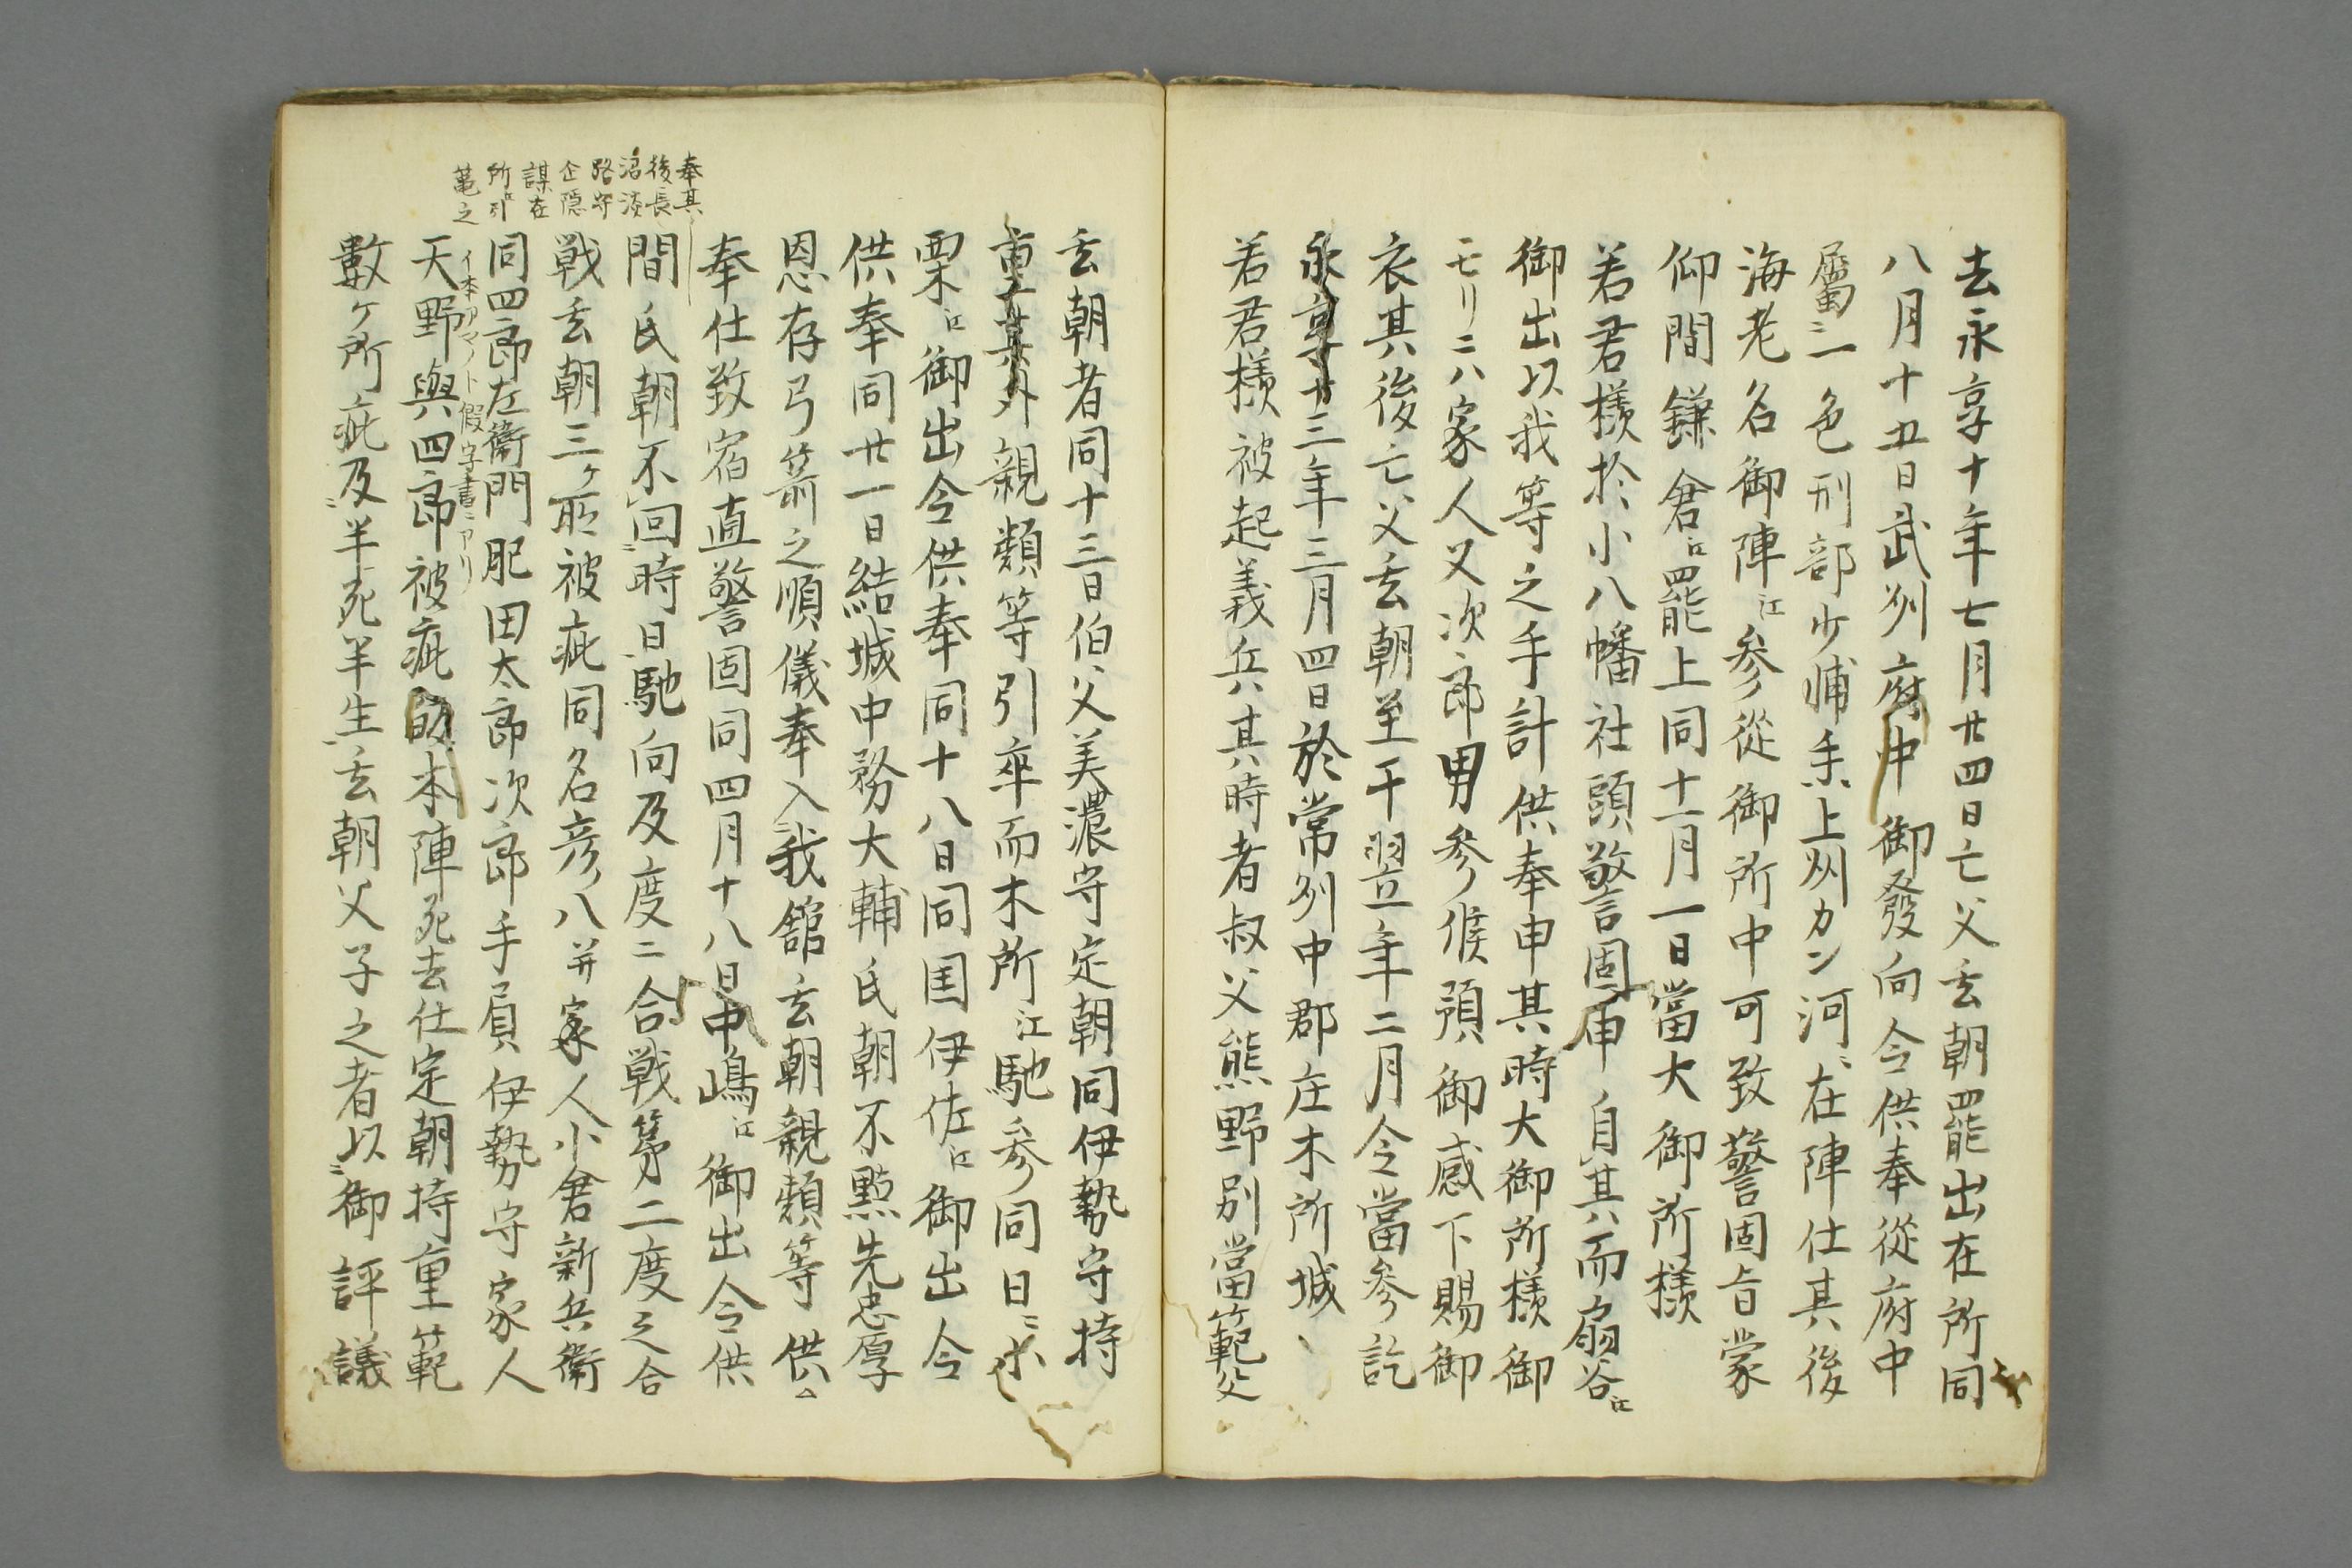 去永享十年七月廿四日亡父玄朝罷出在所同
八月十五日武州府中御發向令供奉從府中
屬ニ一色刑部少輔手上州カン河ニ在陣仕其後
海老名御陣江参從御所中可致警固旨蒙
仰間鎌倉江罷上同十一月一日當大御所様
若君様於小八幡社頭警固申自其而扇谷江
御出以我等之手計供奉申其時大御所様御
モリニハ家人又次郎男参候預御感下賜御
衣其後亡父玄朝至于翌年二月令當参訖
永享十三年三月四日於常州中郡庄木所城
若君様被起義兵其時者叔父熊野別當範父
玄朝者同十三日伯父美濃守定朝同伊勢守持
重其外親類等引率而木所江馳参同日ニ小
栗江御出令供奉同十八日同国伊佐江御出令
供奉同廿一日結城中務大輔氏朝不黙先忠厚
恩存弓箭之順儀奉入我舘玄朝親類等供
奉仕致宿直警固同四月十八日中嶋江御出令供
奉其
後長
沼淡
路守
企隠
謀在
所江引
篭之
間氏朝不回時日馳向及度二合戦第二度之合
戦玄朝三ヶ所被疵同名彦八并家人小倉新兵衛
同四郎左衛門肥田太郎次郎手負伊勢守家人
イ本アマノト假字書ニアリ
天野與四郎被疵皈本陣死去仕定朝持重範
數ヶ所疵及半死半生玄朝父子之者以御評議